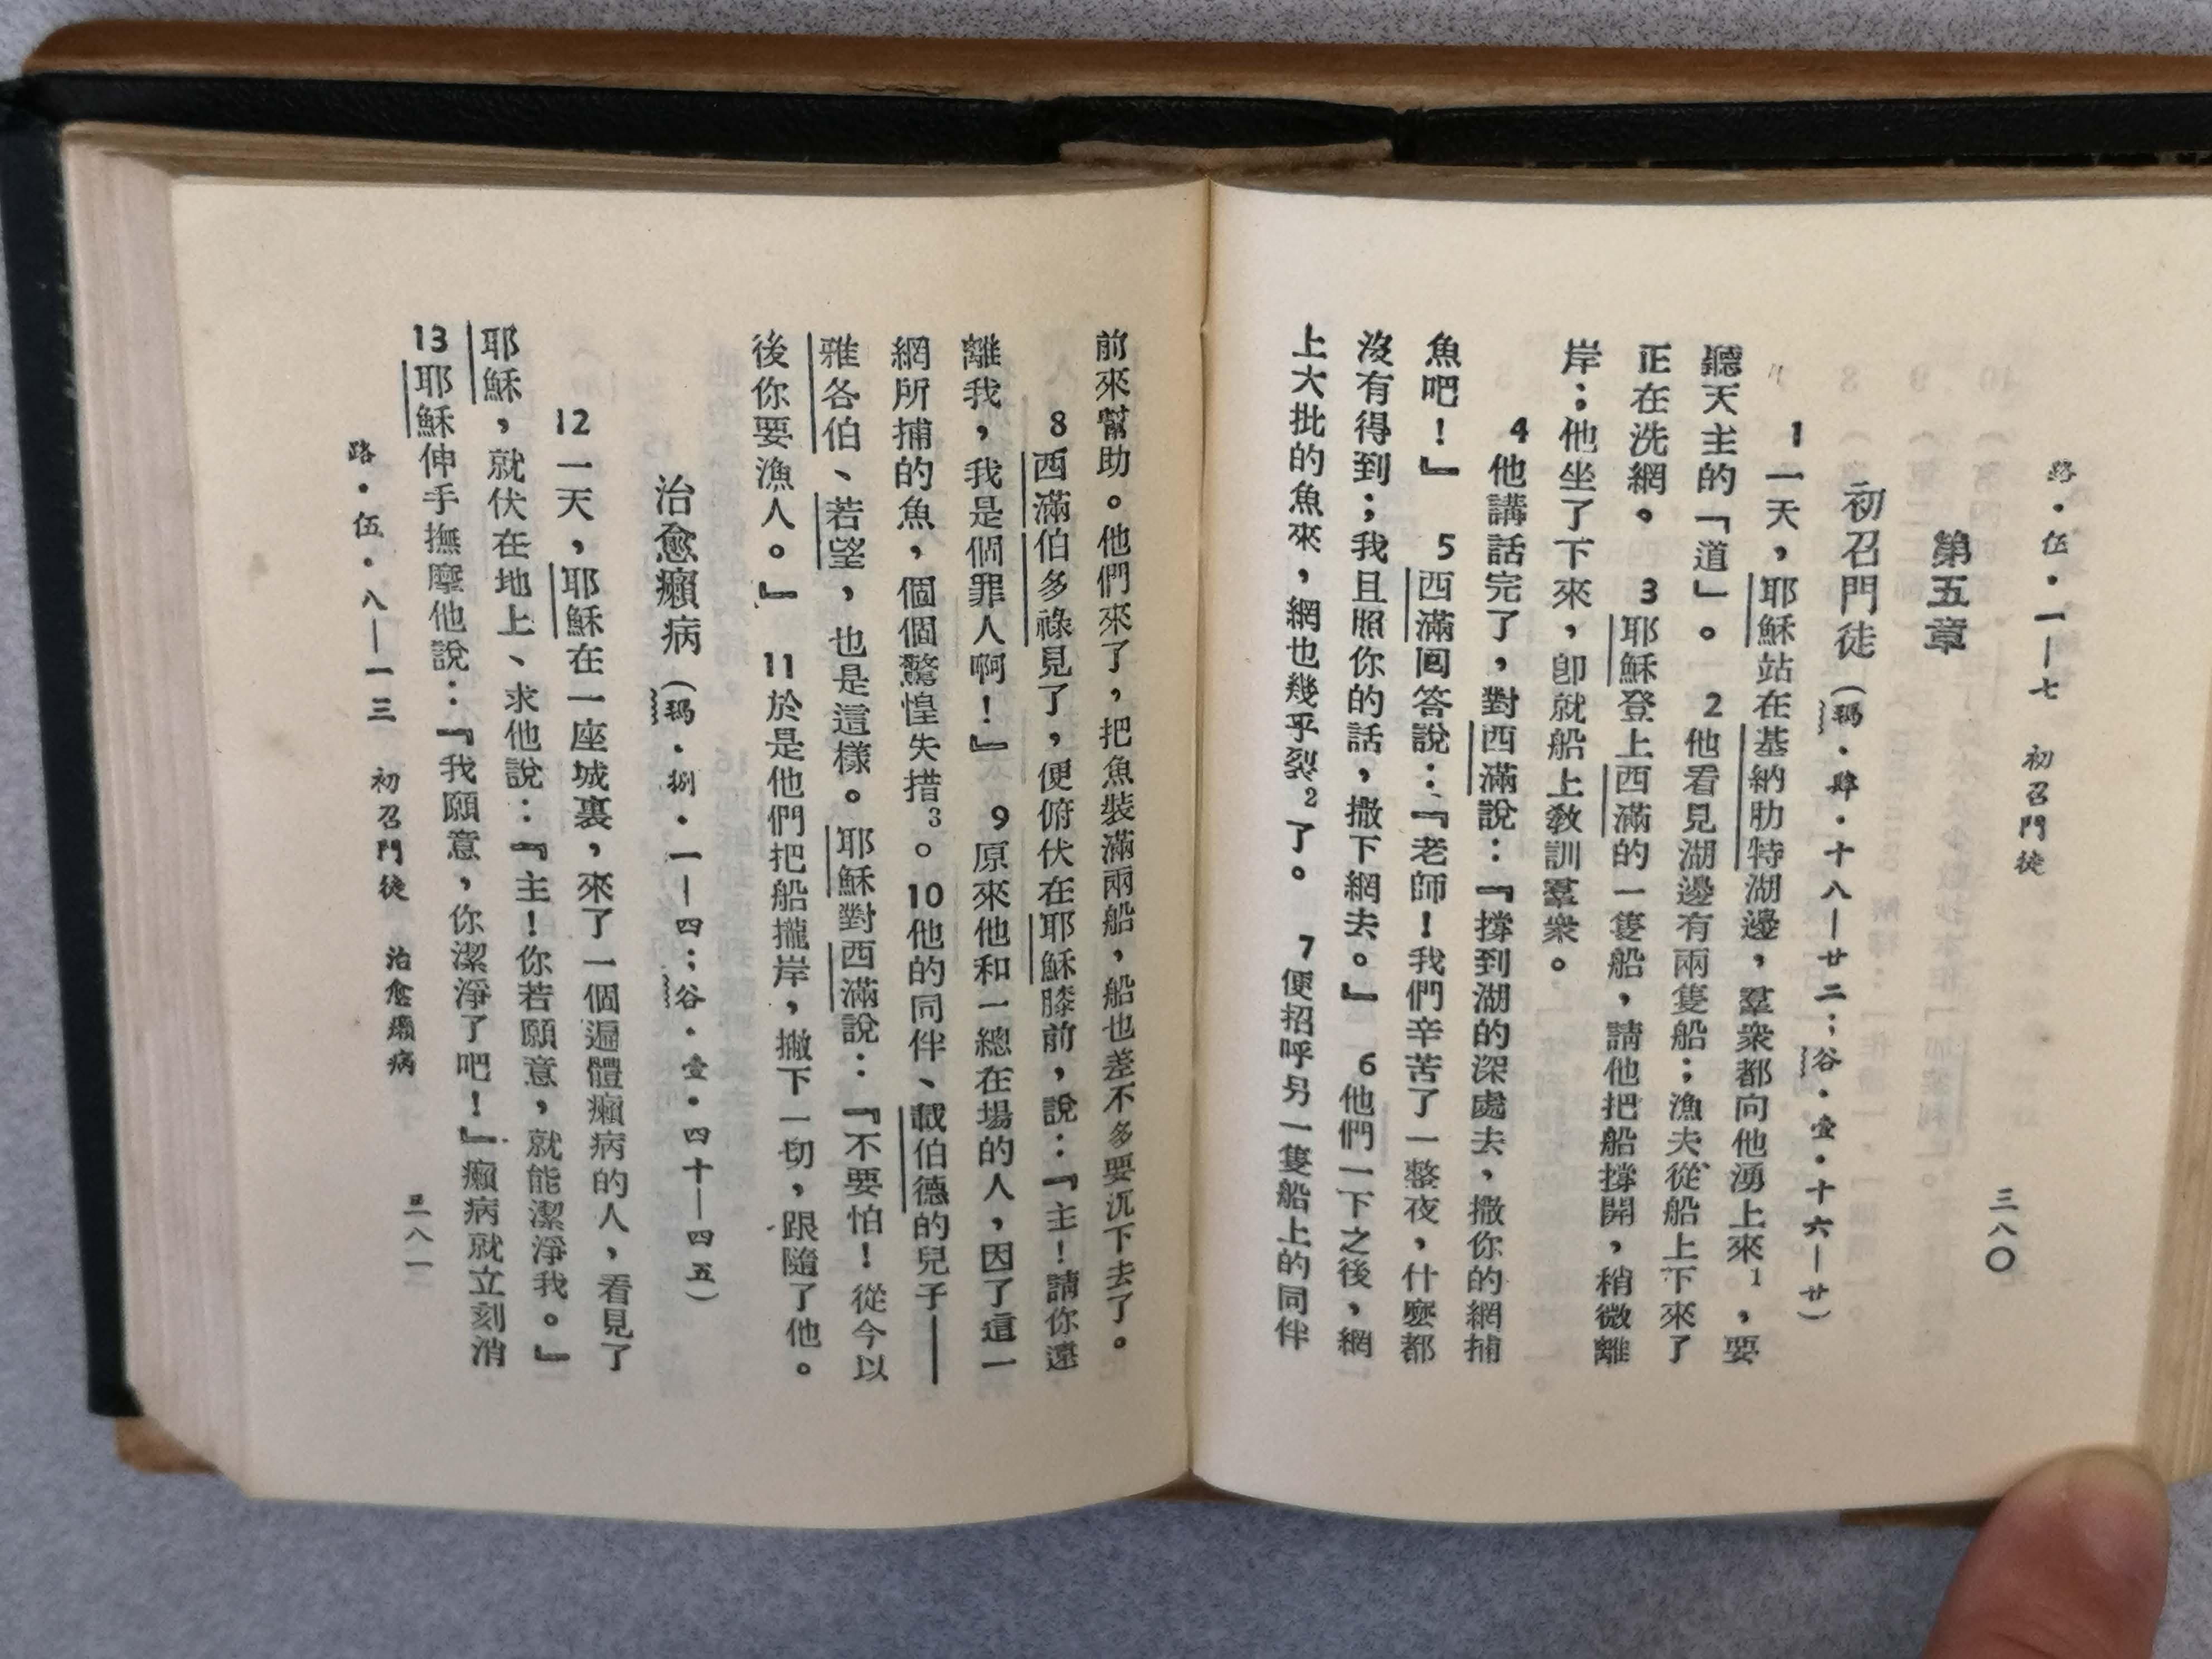 路・伍・一—七　初召門徒　三八〇
第五章
初召門徒（瑪・肆・十八—廿二；谷・壹・十六—廿）
1一天，耶穌站在基納肋特湖邊，羣衆都向他湧上來1，要
聽天主的「道」。　2他看見湖邊有兩隻船；漁夫從船上下來了
正在洗網。　3耶穌登上西滿的一隻船，請他把船撐開，稍微離
岸；他坐了下來，卽就船上教訓羣衆。
4他講話完了，對西滿說：『撐到湖的深處去，撒你的網捕
魚吧！』　5西滿回答說：『老師！我們辛苦了一整夜，什麽都
沒有得到；我且照你的話，撒下網去。』　6他們一下之後，網
上大批的魚來，網也幾乎裂2了。　7便招呼另一隻船上的同伴
前來幫助。他們來了，把魚裝滿兩船，船也差不多要沉下去了。
8西滿伯多祿見了，便俯伏在耶穌膝前，說：『主！請你遠
離我，我是個罪人啊！』　9原來他和一總在場的人，因了這一
網所捕的魚，個個驚惶失措3。10他的同伴、載伯德的兒子——
雅各伯、若望，也是這樣。耶穌對西滿說：『不要怕！從今以
後你要漁人。』　11於是他們把船攏岸，撇下一切，跟隨了他。
治愈癩病（瑪・捌・一—四；谷・壹・四十—四五）
12一天，耶穌在一座城裏，來了一個遍體癩病的人，看見了
耶穌，就伏在地上、求他說：『主！你若願意，就能潔淨我。』
13耶穌伸手撫摩他說：『我願意，你潔淨了吧！』癩病就立刻消
路・伍・八—一三　初召門徒　治愈癩病　三八一